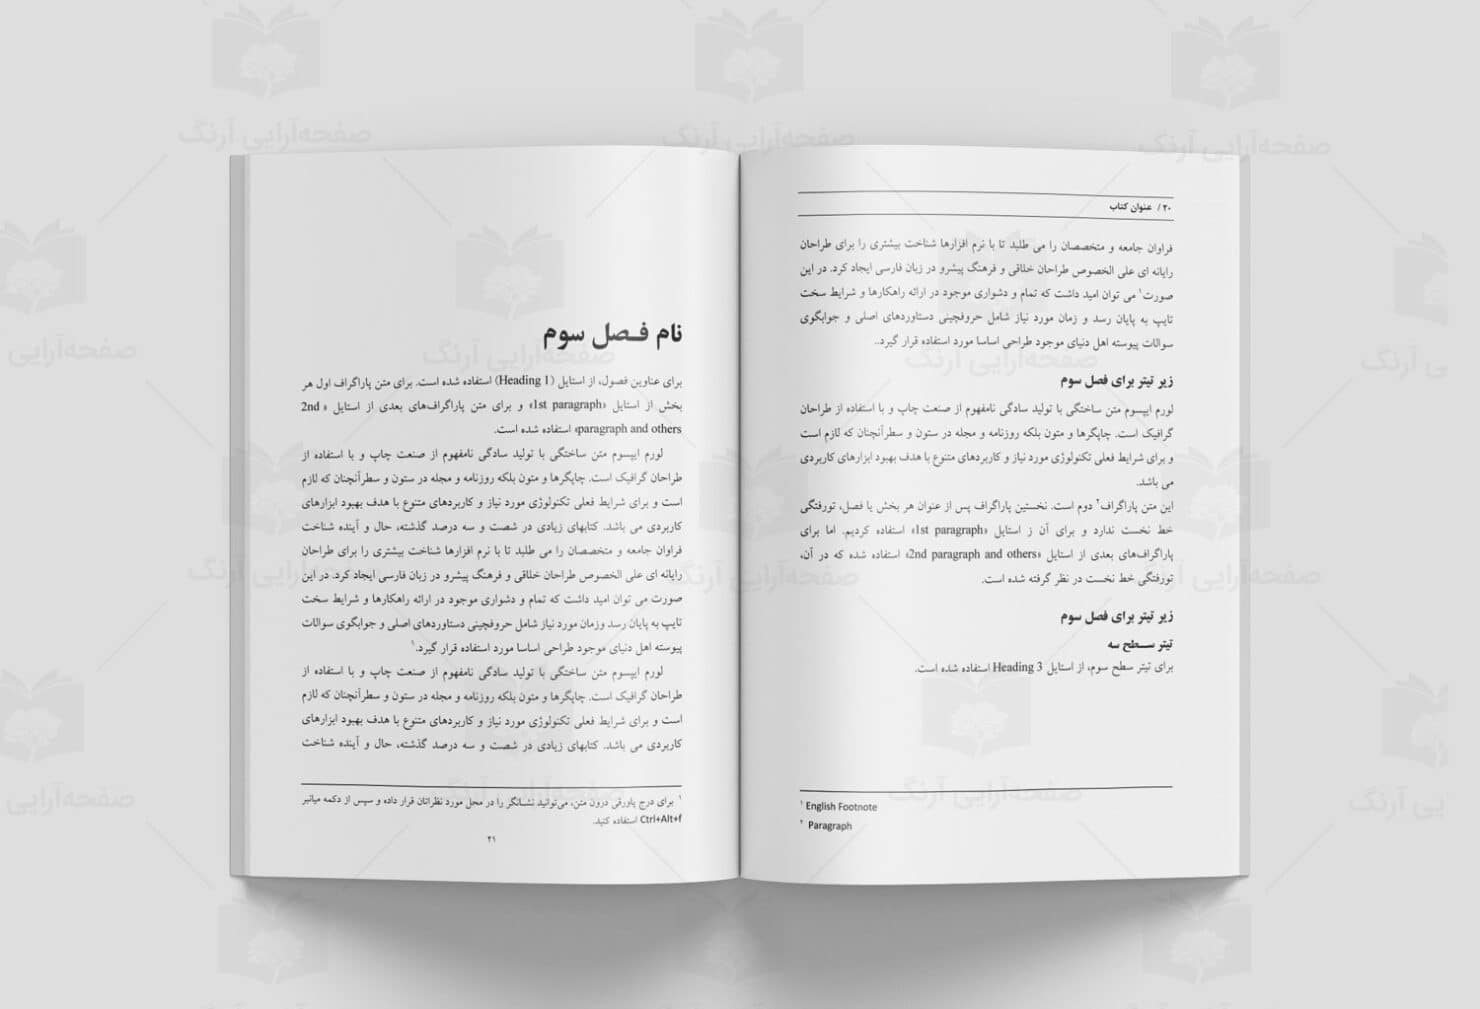 ۲۰ / عنوان کتاب
فراوان جامعه و متخصصان را می طلبد تا با نرم افزارها شناخت بیشتری را برای طراحان
رایانه ای علی الخصوص طراحان خلاقی و فرهنگ پیشرو در زبان فارسی ایجاد کرد. در این
صورت۱ می توان امید داشت که تمام و دشواری موجود در ارائه راهکارها و شرایط سخت
تایپ به پایان رسد و زمان مورد نیاز شامل حروفچینی دستاوردهای اصلی و جوابگوی
سوالات پیوسته اهل دنیای موجود طراحی اساسا مورد استفاده قرار گیرد..
زیر تیتر برای فصل سوم
لورم ایپسوم متن ساختگی با تولید سادگی نامفهوم از صنعت چاپ و با استفاده از طراحان
گرافیک است. چاپگرها و متون بلکه روزنامه و مجله در ستون و سطرآنچنان که لازم است
و برای شرایط فعلی تکنولوژی مورد نیاز و کاربردهای متنوع با هدف بهبود ابزارهای کاربردی
می باشد.
این متن پاراگراف۲ دوم است. نخستین پاراگراف پس از عنوان هر بخش یا فصل، تورفتگی
خط نخست ندارد و برای آن ز استایل «1st paragraph» استفاده کردیم. اما برای
پاراگراف‌های بعدی از استایل «2nd paragraph and others» استفاده شده که در آن،
تورفتگی خط نخست در نظر گرفته شده است.
زیر تیتر برای فصل سوم
تیتر سـطح سه
برای تیتر سطح سوم، از استایل Heading 3 استفاده شده است.
۱ English Footnote
۲ Paragraph
نام فـصل سوم
برای عناوین فصول، از استایل (Heading 1) استفاده شده است. برای متن پاراگراف اول هر
بخش از استایل «1st paragraph» و برای متن پاراگراف‌های بعدی از استایل « 2nd
paragraph and others» استفاده شده است.
لورم ایپسوم متن ساختگی با تولید سادگی نامفهوم از صنعت چاپ و با استفاده از
طراحان گرافیک است. چاپگرها و متون بلکه روزنامه و مجله در ستون و سطرآنچنان که لازم
است و برای شرایط فعلی تکنولوژی مورد نیاز و کاربردهای متنوع با هدف بهبود ابزارهای
کاربردی می باشد. کتابهای زیادی در شصت و سه درصد گذشته، حال و آینده شناخت
فراوان جامعه و متخصصان را می طلبد تا با نرم افزارها شناخت بیشتری را برای طراحان
رایانه ای علی الخصوص طراحان خلاقی و فرهنگ پیشرو در زبان فارسی ایجاد کرد. در این
صورت می توان امید داشت که تمام و دشواری موجود در ارائه راهکارها و شرایط سخت
تایپ به پایان رسد وزمان مورد نیاز شامل حروفچینی دستاوردهای اصلی و جوابگوی سوالات
پیوسته اهل دنیای موجود طراحی اساسا مورد استفاده قرار گیرد.۱
لورم ایپسوم متن ساختگی با تولید سادگی نامفهوم از صنعت چاپ و با استفاده از
طراحان گرافیک است. چاپگرها و متون بلکه روزنامه و مجله در ستون و سطرآنچنان که لازم
است و برای شرایط فعلی تکنولوژی مورد نیاز و کاربردهای متنوع با هدف بهبود ابزارهای
کاربردی می باشد. کتابهای زیادی در شصت و سه درصد گذشته، حال و آینده شناخت
۱ برای درج پاورقی درون متن، می‌توانید نشانگر را در محل مورد نظرتان قرار داده و سپس از دکمه میانبر
Ctrl+Alt+f استفاده کنید.
۲۱
صفحه‌آرایی آرنگ
صفحه‌آرایی آرنگ
صفحه‌آرایی آرنگ
صفحه‌آرایی
صفحه‌آرایی آرنگ
صفحه‌آرایی آرنگ
صفحه‌آرایی آرنگ
صفحه‌آرایی آرنگ
صفحه‌آرایی آرنگ
صفحه‌آرایی
صفحه‌آرایی آرنگ
صفحه‌آرایی آرنگ